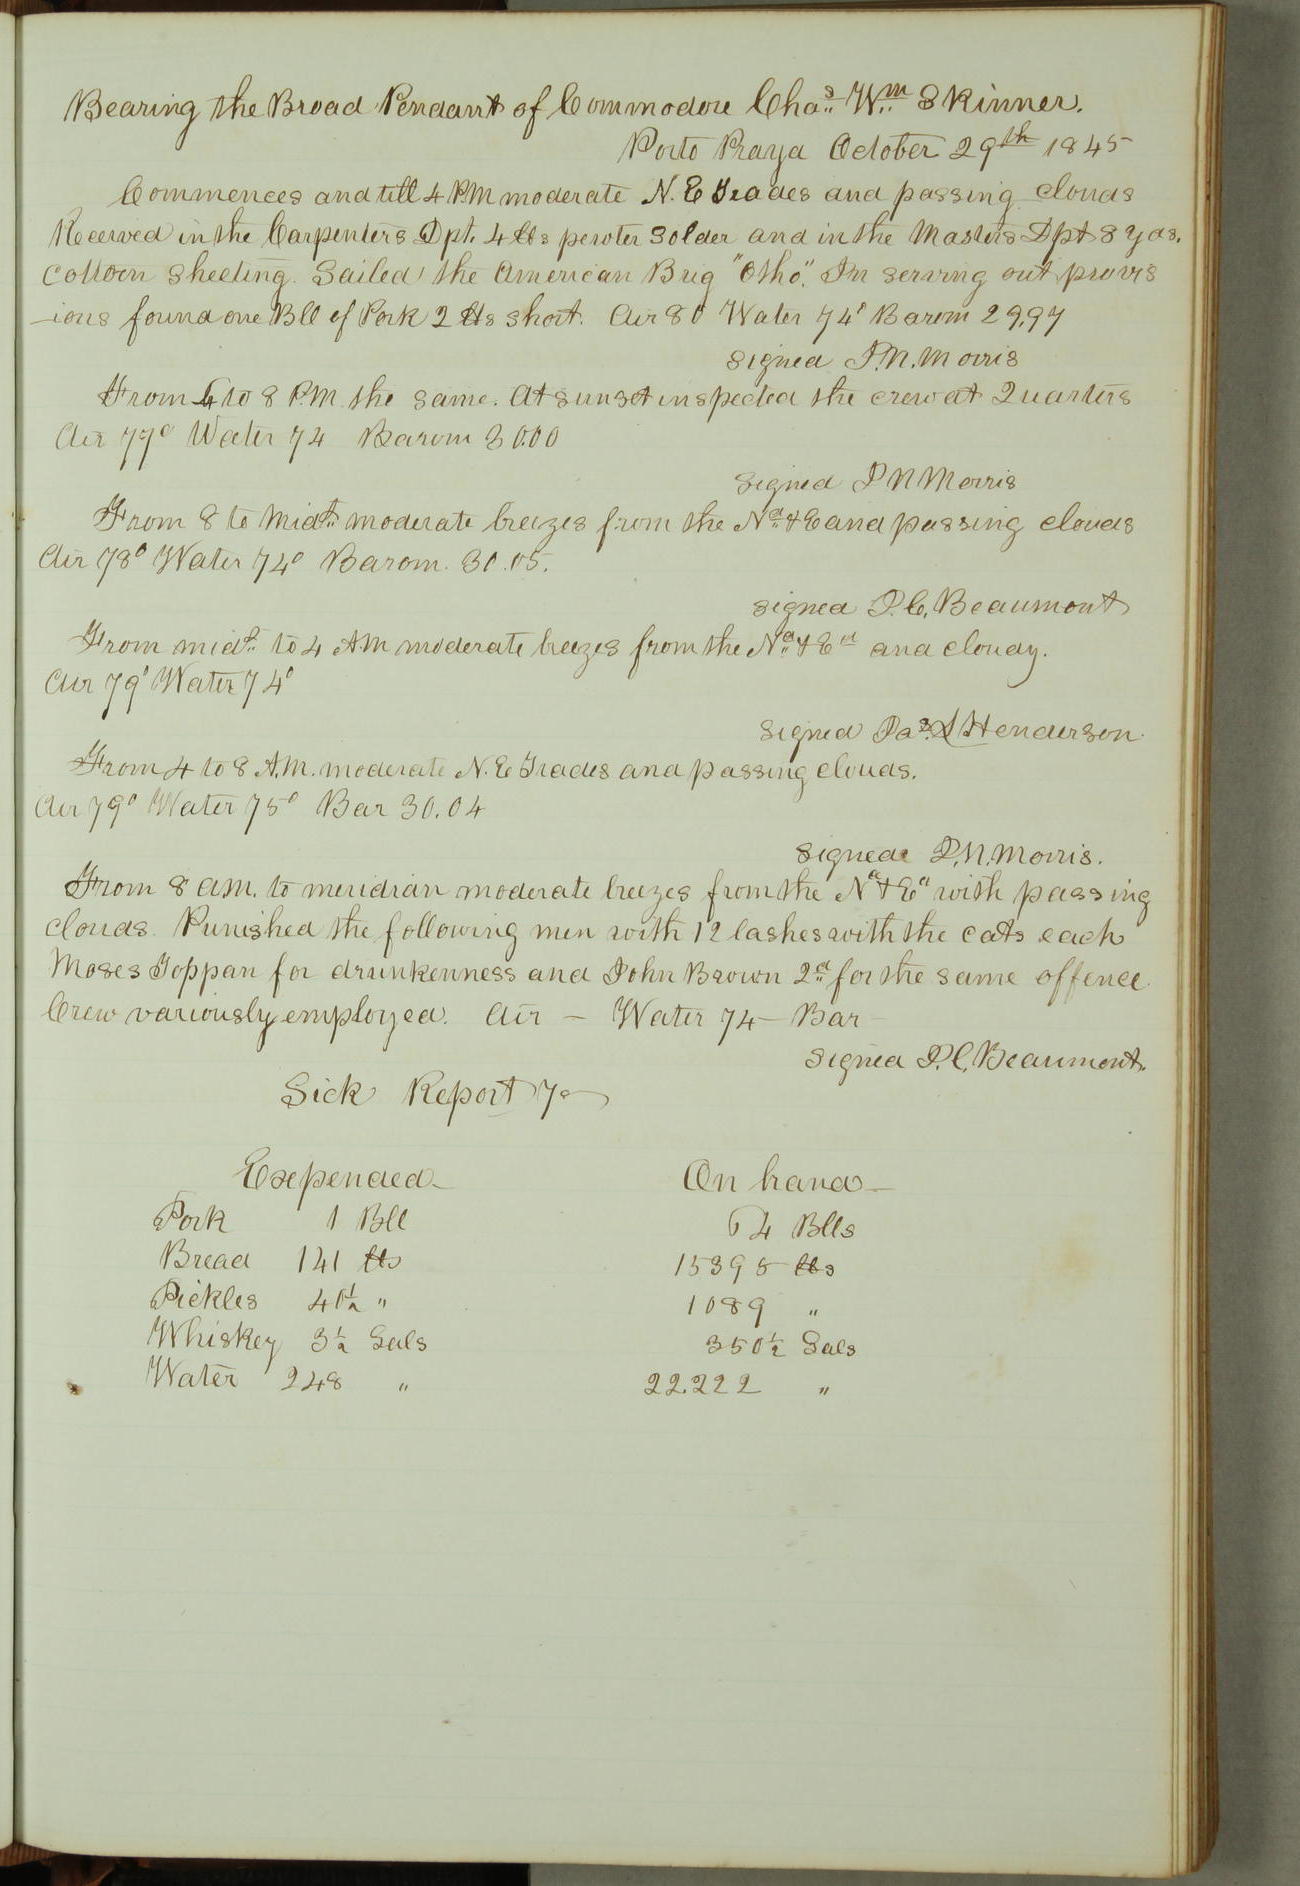 Bearing the Broad Pendant of Commodore Chas. Wm. Skinner.
Porto Praya October 29th 1845
Commences and till 4 P.M moderate N. E Trades and passing clouds
Received in the Carpenters Dpt. 4 lbs pewter Solder and in the Masters Dpt 8 yds.
Cotton Sheeting. Sailed the American Brig "Otho". In serving out provis
-ions found one Bll of Pork 2 lbs short. Air 80 Water 74° Barom 29.97
Signed I.N. Morris
From 4 to 8 P.M. the same. At sunset inspected the crew at Quarters
Air 77° Water 74 Barom 30.00
Signed I N Morris
From 8 to Midt. moderate breezes from the Nd. & E and passing clouds
Air 78° Water 74° Barom. 30.05.
Signed I. C. Beaumont
From midt. to 4 A.M moderate breezes from the Nd. & Ed and cloudy.
Air 79° Water 74°
Signed Jas. L Henderson
From 4 to 8 A.M. moderate N. E Trades and passing clouds.
Air 79° Water 75° Bar 30.04
Signed I.N. Morris.
From 8 A.M. to meridian moderate breezes from the Nd & Ed with passing
clouds. Punished the following men with 12 lashes with the cats each
Moses Toppan for drunkenness and John Brown 2d. for the same offence
Crew variously employed. Air — Water 74 — Bar —
Signed I. C. Beaumont.
Sick Report 7
Expended — On hand —
Pork 1 Bll 64 Blls
Bread 141 lbs 15395 lbs
Pickles 40½ " 1089 "
Whiskey 3½ Gals 350½ Gals
Water 248 " 22.222 "